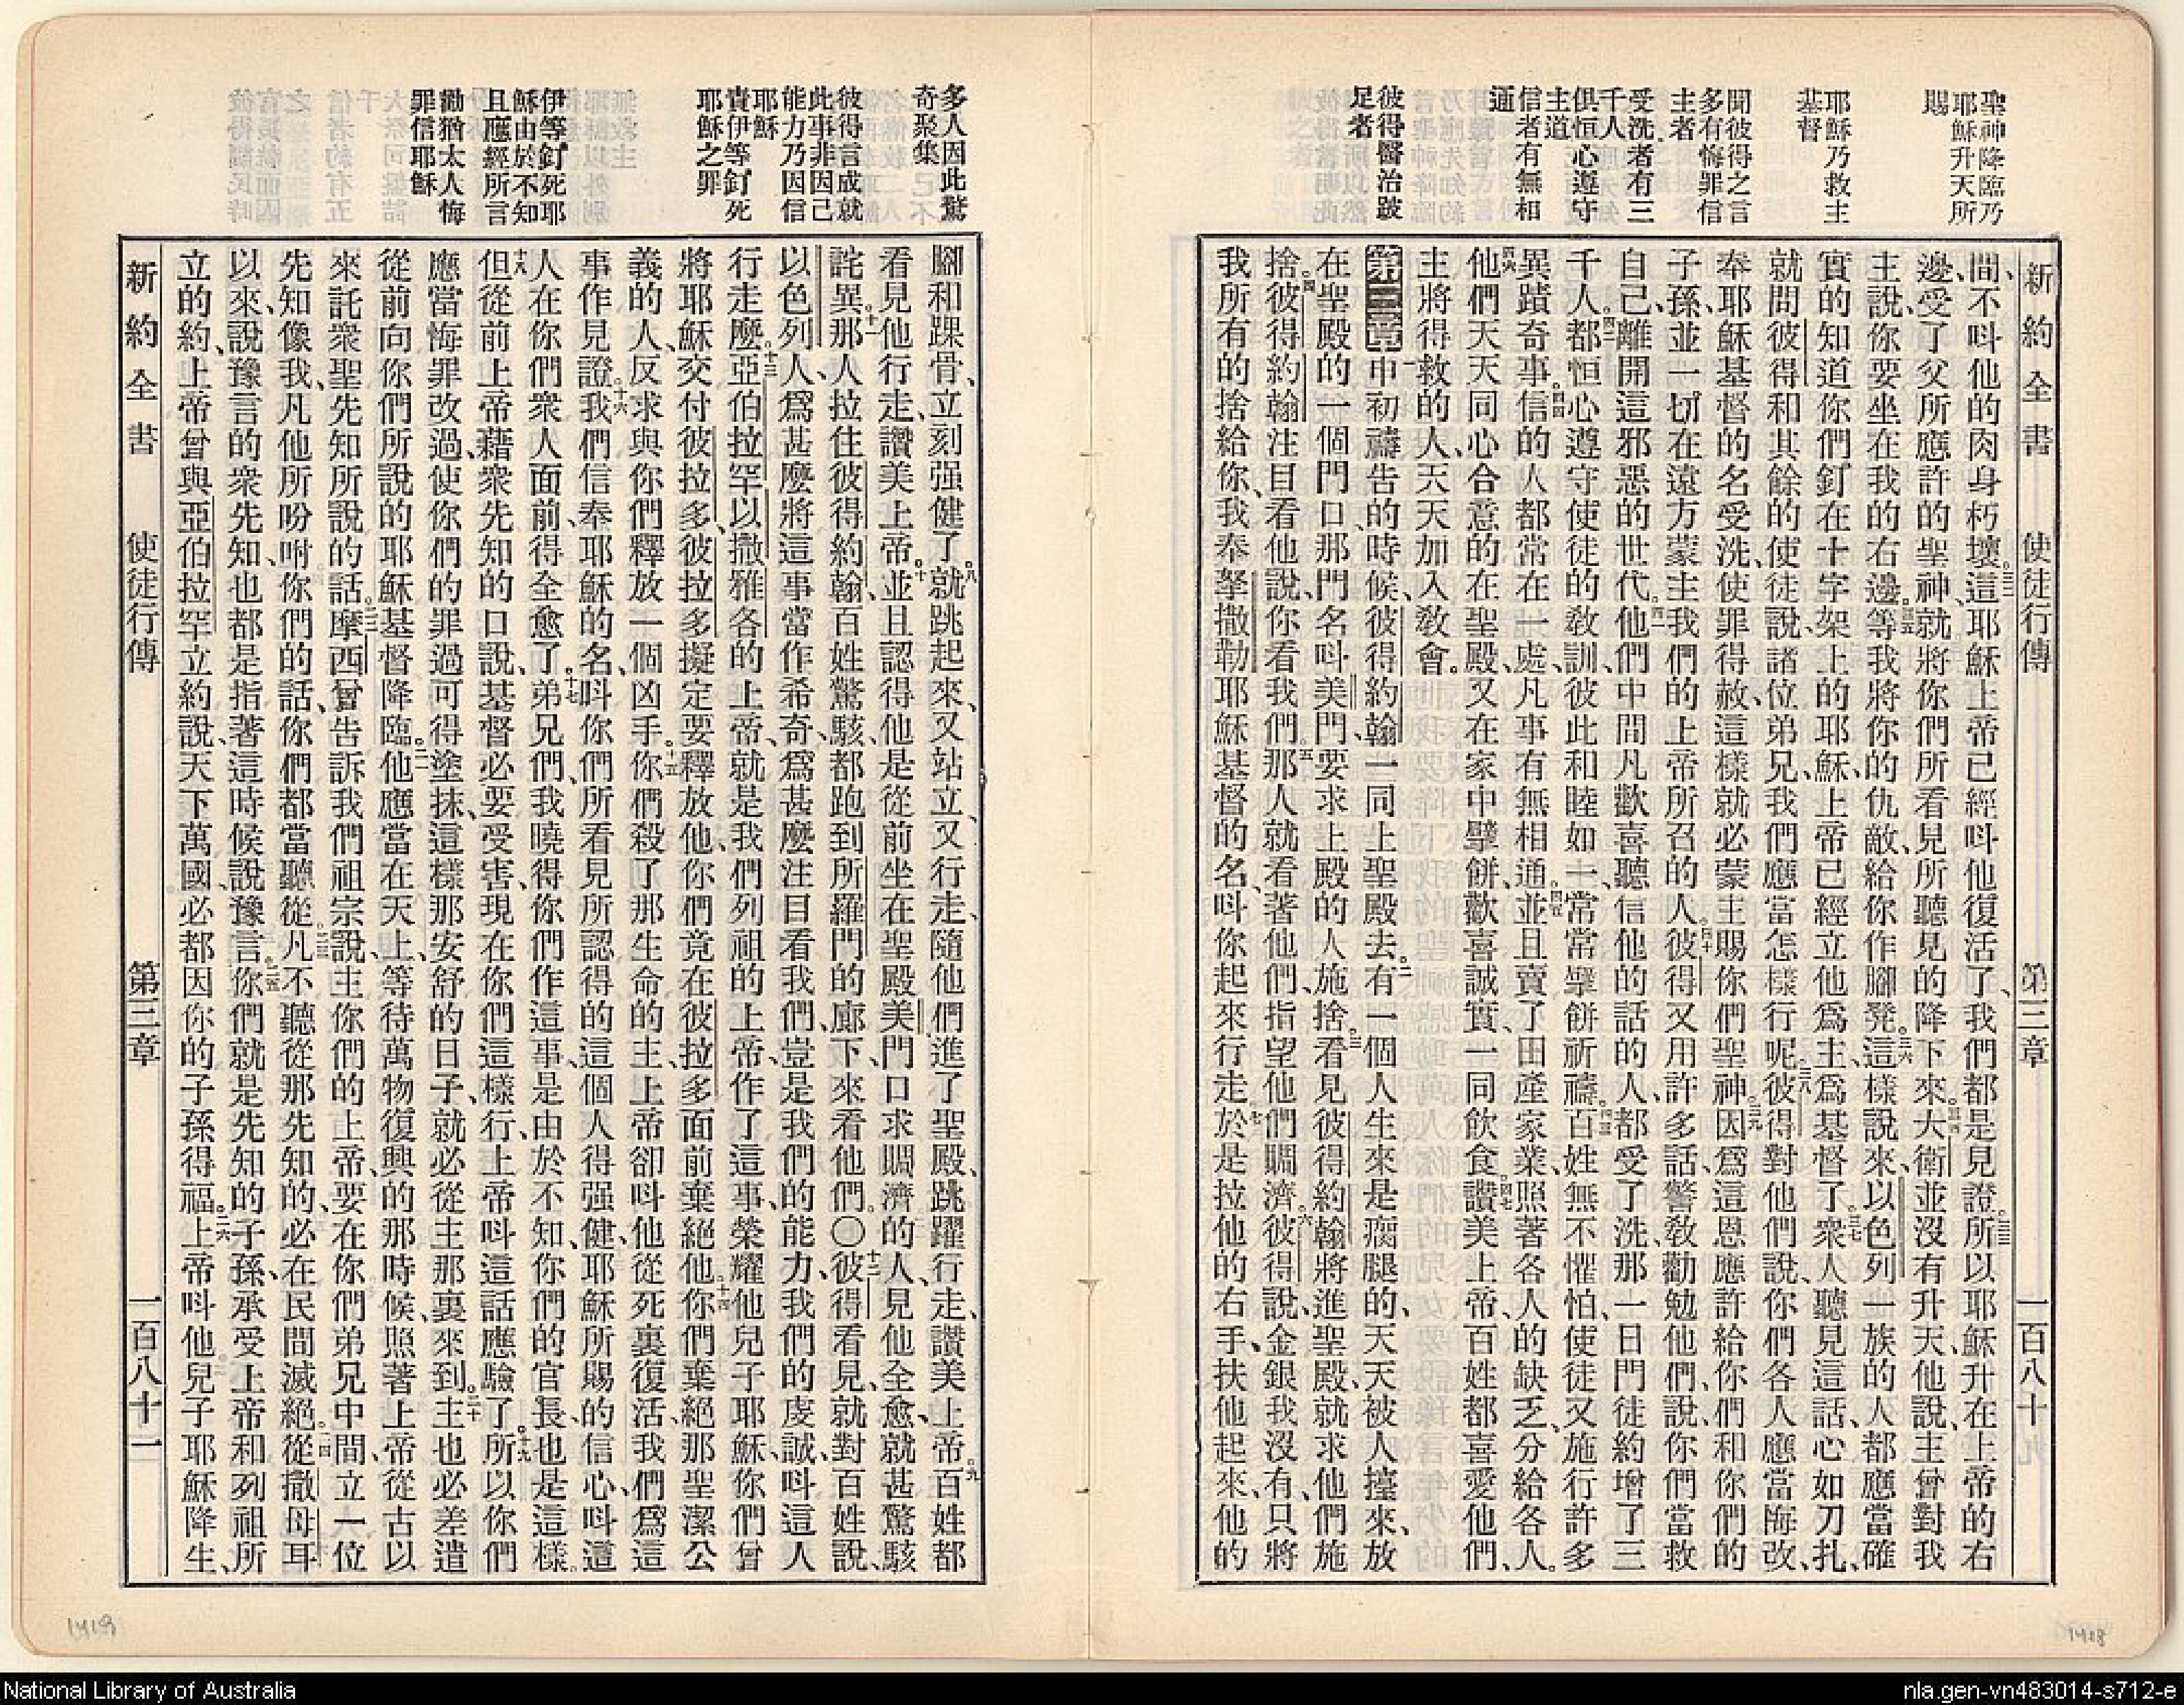 聖神降臨乃
耶穌升天所
賜
耶穌乃救主
基督
聞彼得之言
多有悔罪信
主者
受洗者有三
千人
俱恒心遵守
主道
信者有無相
通
彼得醫治跛
足者
新約全書 使徒行傳 第三章 一百八十
間、不呌他的肉身朽壞。三二這耶穌上帝已經呌他復活了、我們都是見證。三三所以耶穌升在上帝的右
邊、受了父所應許的聖神、就將你們所看見所聽見的降下來。三四大衛並沒有升天、他說、主曾對我
主說、你要坐在我的右邊。三五等我將你的仇敵、給你作腳凳。三六這樣說來、以色列一族的人、都應當確
實的知道你們釘在十字架上的耶穌、上帝已經立他爲主、爲基督了。三七衆人聽見這話、心如刀扎、
就問彼得和其餘的使徒說、諸位弟兄、我們應當怎樣行呢。三八彼得對他們說、你們各人應當悔改、
奉耶穌基督的名受洗、使罪得赦、這樣就必蒙主賜你們聖神。三九因爲這恩應許給你們、和你們的
子孫、並一切在遠方蒙主我們的上帝所召的人。四十彼得又用許多話、警敎勸勉他們、說、你們當救
自己、離開這邪惡的世代。四一他們中間凡歡喜聽信他的話的人、都受了洗、那一日門徒約增了三
千人。四二都恒心遵守使徒的敎訓、彼此和睦如一、常常擘餅祈禱。四三百姓無不懼怕、使徒又施行許多
異蹟奇事。四四信的人都常在一處、凡事有無相通。四五並且賣了田產家業、照著各人的缺乏、分給各人。
四六他們天天同心合意的在聖殿、又在家中擘餅、歡喜誠實、一同飲食。四七讚美上帝、百姓都喜愛他們、
主將得救的人、天天加入敎會。
第三章 一申初禱告的時候、彼得約翰、一同上聖殿去。二有一個人生來是瘸腿的、天天被人擡來、放
在聖殿的一個門口、那門名呌美門、要求上殿的人施捨。三看見彼得約翰將進聖殿、就求他們施
捨。四彼得約翰注目看他說、你看我們。五那人就看著他們、指望他們賙濟。六彼得說、金銀我沒有、只將
我所有的捨給你、我奉拏撒勒耶穌基督的名、呌你起來行走。七於是拉他的右手、扶他起來、他的
多人因此驚
奇聚集
彼得言成就
此事非因己
能力乃因信
耶穌
責伊等釘死
耶穌之罪
伊等釘死耶
穌由於不知
且應經所言
勸猶太人悔
罪信耶穌
腳和踝骨、立刻强健了。八就跳起來、又站立、又行走、隨他們進了聖殿、跳躍行走、讚美上帝。九百姓都
看見他行走、讚美上帝。十並且認得他是從前坐在聖殿美門口求賙濟的人、見他全愈、就甚驚駭
詫異。十一那人拉住彼得約翰、百姓驚駭、都跑到所羅門的廊下、來看他們。〇十二彼得看見、就對百姓說、
以色列人、爲甚麼將這事當作希奇、爲甚麼注目看我們、豈是我們的能力、我們的虔誠、呌這人
行走麼。十三亞伯拉罕、以撒、雅各的上帝、就是我們列祖的上帝、作了這事、榮耀他兒子耶穌、你們曾
將耶穌交付彼拉多、彼拉多擬定要釋放他、你們竟在彼拉多面前棄絕他。十四你們棄絕那聖潔公
義的人、反求與你們釋放一個凶手。十五你們殺了那生命的主、上帝卻呌他從死裏復活、我們爲這
事作見證。十六我們信奉耶穌的名、呌你們所看見所認得的這個人得强健、耶穌所賜的信心、呌這
人在你們衆人面前、得全愈了。十七弟兄們、我曉得你們作這事、是由於不知、你們的官長、也是這樣。
十八但從前上帝藉衆先知的口說、基督必要受害、現在你們這樣行、上帝呌這話應驗了。十九所以你們
應當悔罪改過、使你們的罪過可得塗抹、這樣、那安舒的日子、就必從主那裏來到。二十主也必差遣
從前向你們所說的耶穌基督降臨。二一他應當在天上、等待萬物復興的那時候、照著上帝從古以
來、託衆聖先知所說的話。二二摩西曾告訴我們祖宗說、主你們的上帝、要在你們弟兄中間、立一位
先知像我、凡他所吩咐你們的話、你們都當聽從。二三凡不聽從那先知的、必在民間滅絕。二四從撒母耳
以來、說豫言的衆先知、也都是指著這時候說豫言。二五你們就是先知的子孫、承受上帝和列祖所
立的約、上帝曾與亞伯拉罕立約說、天下萬國、必都因你的子孫得福。二六上帝呌他兒子耶穌降生、
新約全書 使徒行傳 第三章 一百八十一
1419
1418
National Library of Australia
nla.gen-vn483014-s712-e